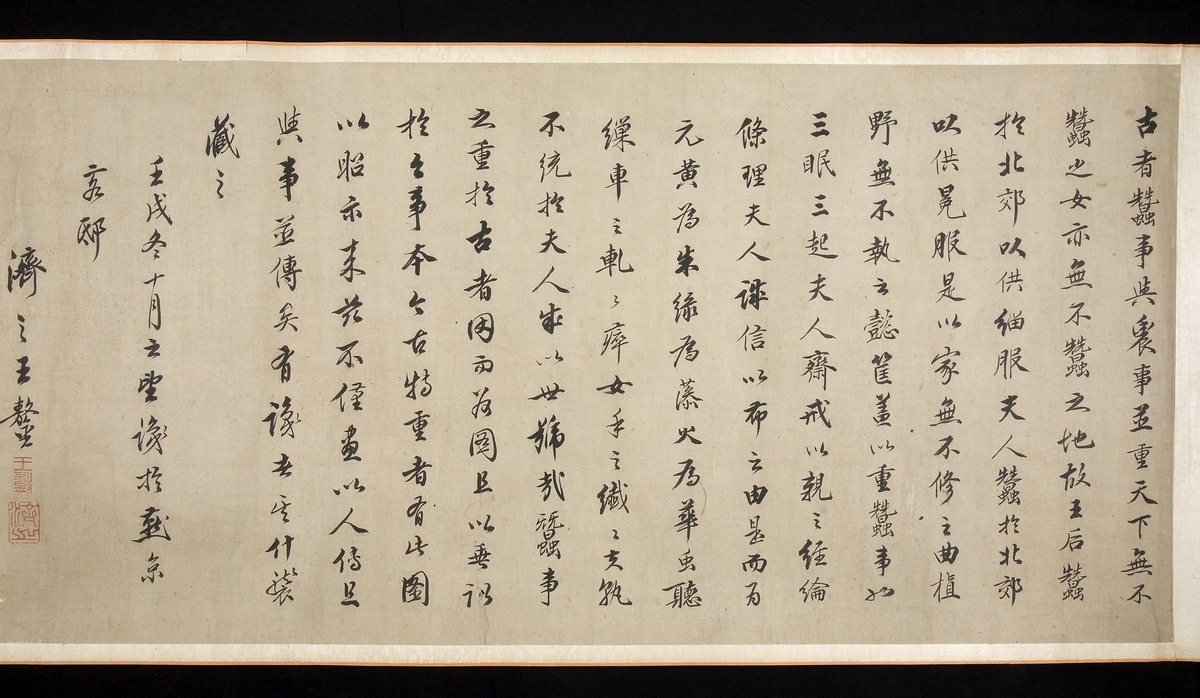 古者蠶事與農事並重天下無不
蠶之女亦無不蠶之地故王后蠶
於北郊以供緇服夫人蠶於北郊
以供冕服是以家無不修之曲植
野無不執之懿筐蓋以重蠶事也
三眠三起夫人齋戒以親之經綸
條理夫人課信以布之由是而為
元黃為朱綠為藻火為華虫聽
繰車之軋々瘁女手之纖々夫孰
不統於夫人成以世號哉蠶事
之重於古者固而為圖且以垂訓
於之事本今古特重者有此圖
以昭示來茲不僅畫以人傳且
與事並傳矣有識者其什襲
藏之
壬戌冬十月之望識於燕京
客邸
濟之王鏊